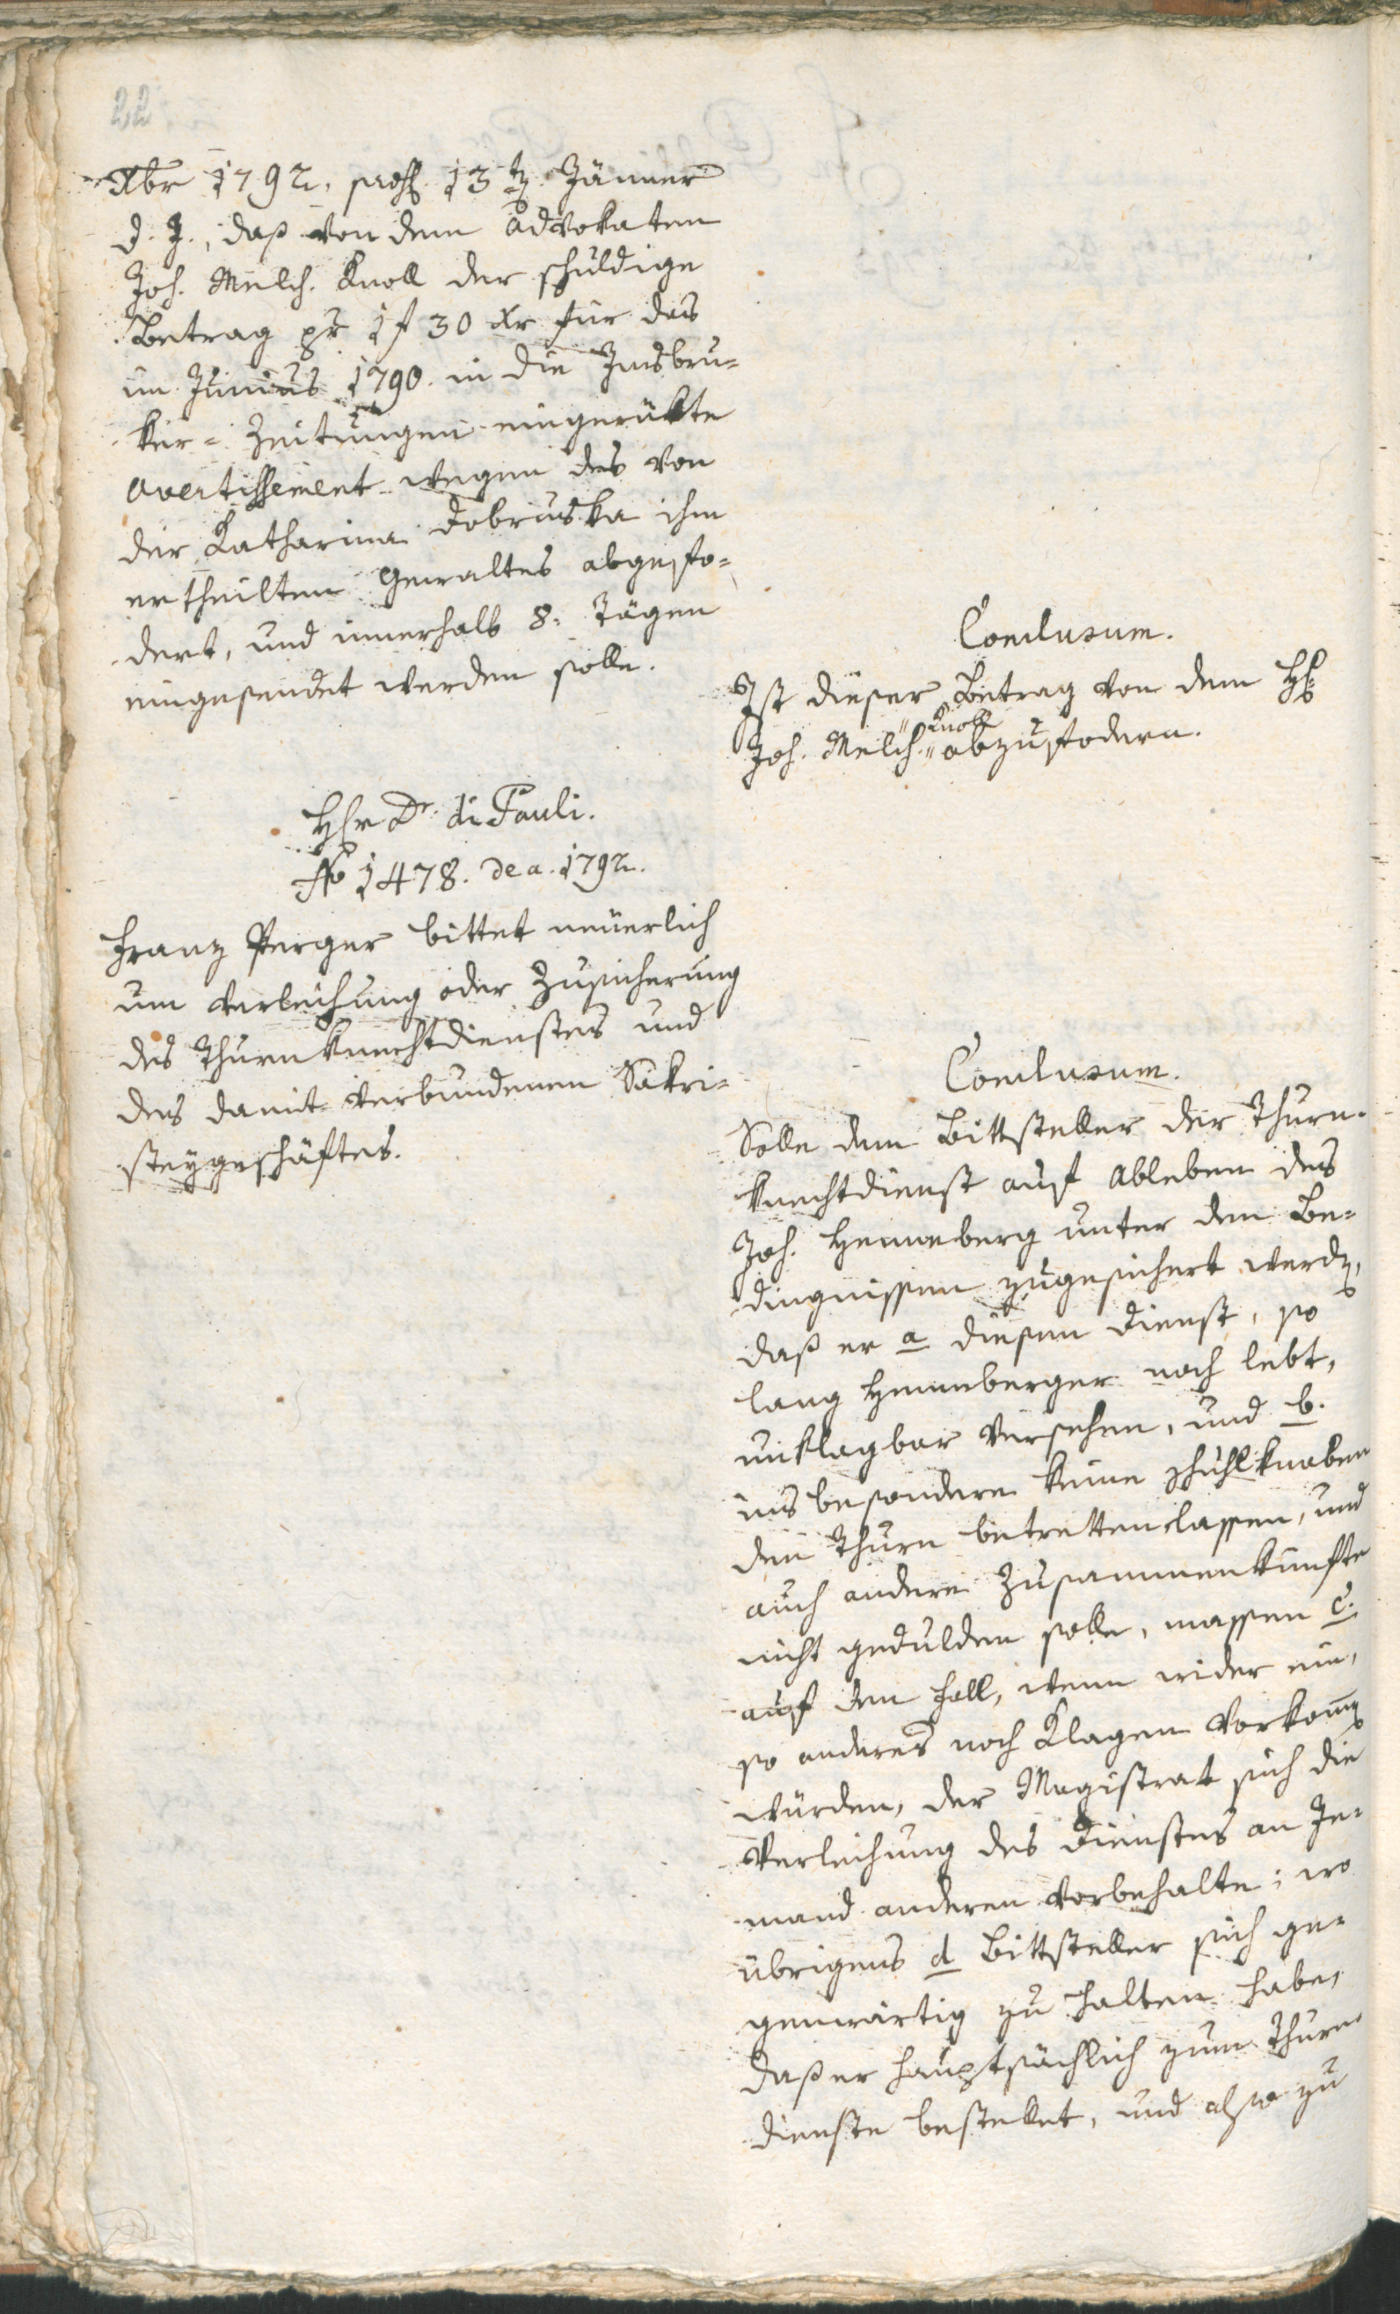 22
Xbr 1792, praes. 13ten Jänner
d. J., daß von dem Advokaten
Joh. Melch. Knoll der schuldige
Betrag pr 1 f 30 xr für das
im Junius 1790. in die Insbru-
ker- Zeitungen eingerükte
Avertissement wegen des von
der Katharina Dobruska ihm
ertheilten Gewaltes abgefo-
dert, und innerhalb 8. Tägen
eingesendet werden solle.
Conclusum.
Ist dieser Betrag von dem H:
Joh. Melch. "Knoll" abzufodern.
Hr Dr. di Pauli.
No 1478. de a. 1792.
Franz Perger bittet neuerlich
um Verleihung oder Zusicherung
des Thurnknechtdienstes und
des damit verbundenen Sakri-
steygeschäftes.
Conclusum.
Solle dem Bittsteller der Thurn-
knechtdienst auf Ableben des
Joh. Henneberg unter den Be-
dingnissen zugesichert werden,
daß er a diesen Dienst, so
lang Henneberger noch lebt,
unklagbar versehen, und b.
ins besondere keine Schuhlknaben
den Thurn betretten lassen, und
auch andere Zusammenkünfte
nicht gedulden solle, massen c.
auf den Fall, wenn wider ein,
so anderes noch Klagen vorkommen
würden, der Magistrat sich die
Verleihung des Dienstes an Je-
mand anderen vorbehalte; wo
übrigens d Bittsteller sich ge-
genwärtig zu halten habe,
daß er hauptsächlich zum Thurn-
dienste bestellet, und also zu